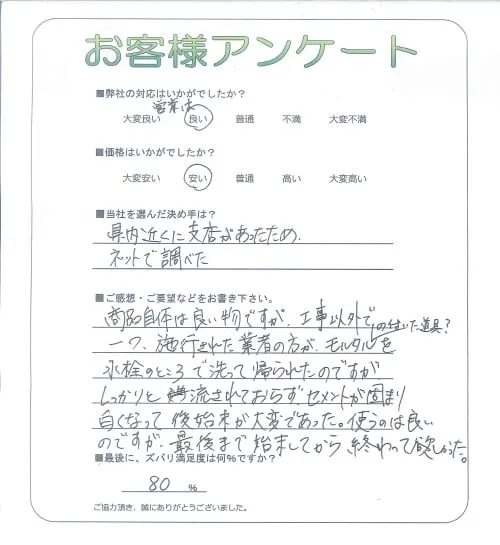 お客様アンケート
■弊社の対応はいかがでしたか?
営業は
大変良い 良い 普通 不満 大変不満
■価格はいかがでしたか?
大変安い 安い 普通 高い 大変高い
■当社を選んだ決め手は?
県内近くに支店があったため.
ネットで調べた
■ご感想・ご要望などをお書き下さい。
商品自体は良い物ですが、工事以外で
の付いた道具?
一つ、施行された業者の方が、モルタルを
水栓のところで洗って帰られたのですが
しっかりと 流されておらずセメントが固まり
白くなって後始末が大変であった。使うのは良い
のですが、最後まで始末してから終わって欲しかった。
■最後に、ズバリ満足度は何%ですか?
80 %
ご協力頂き、誠にありがとうございました。